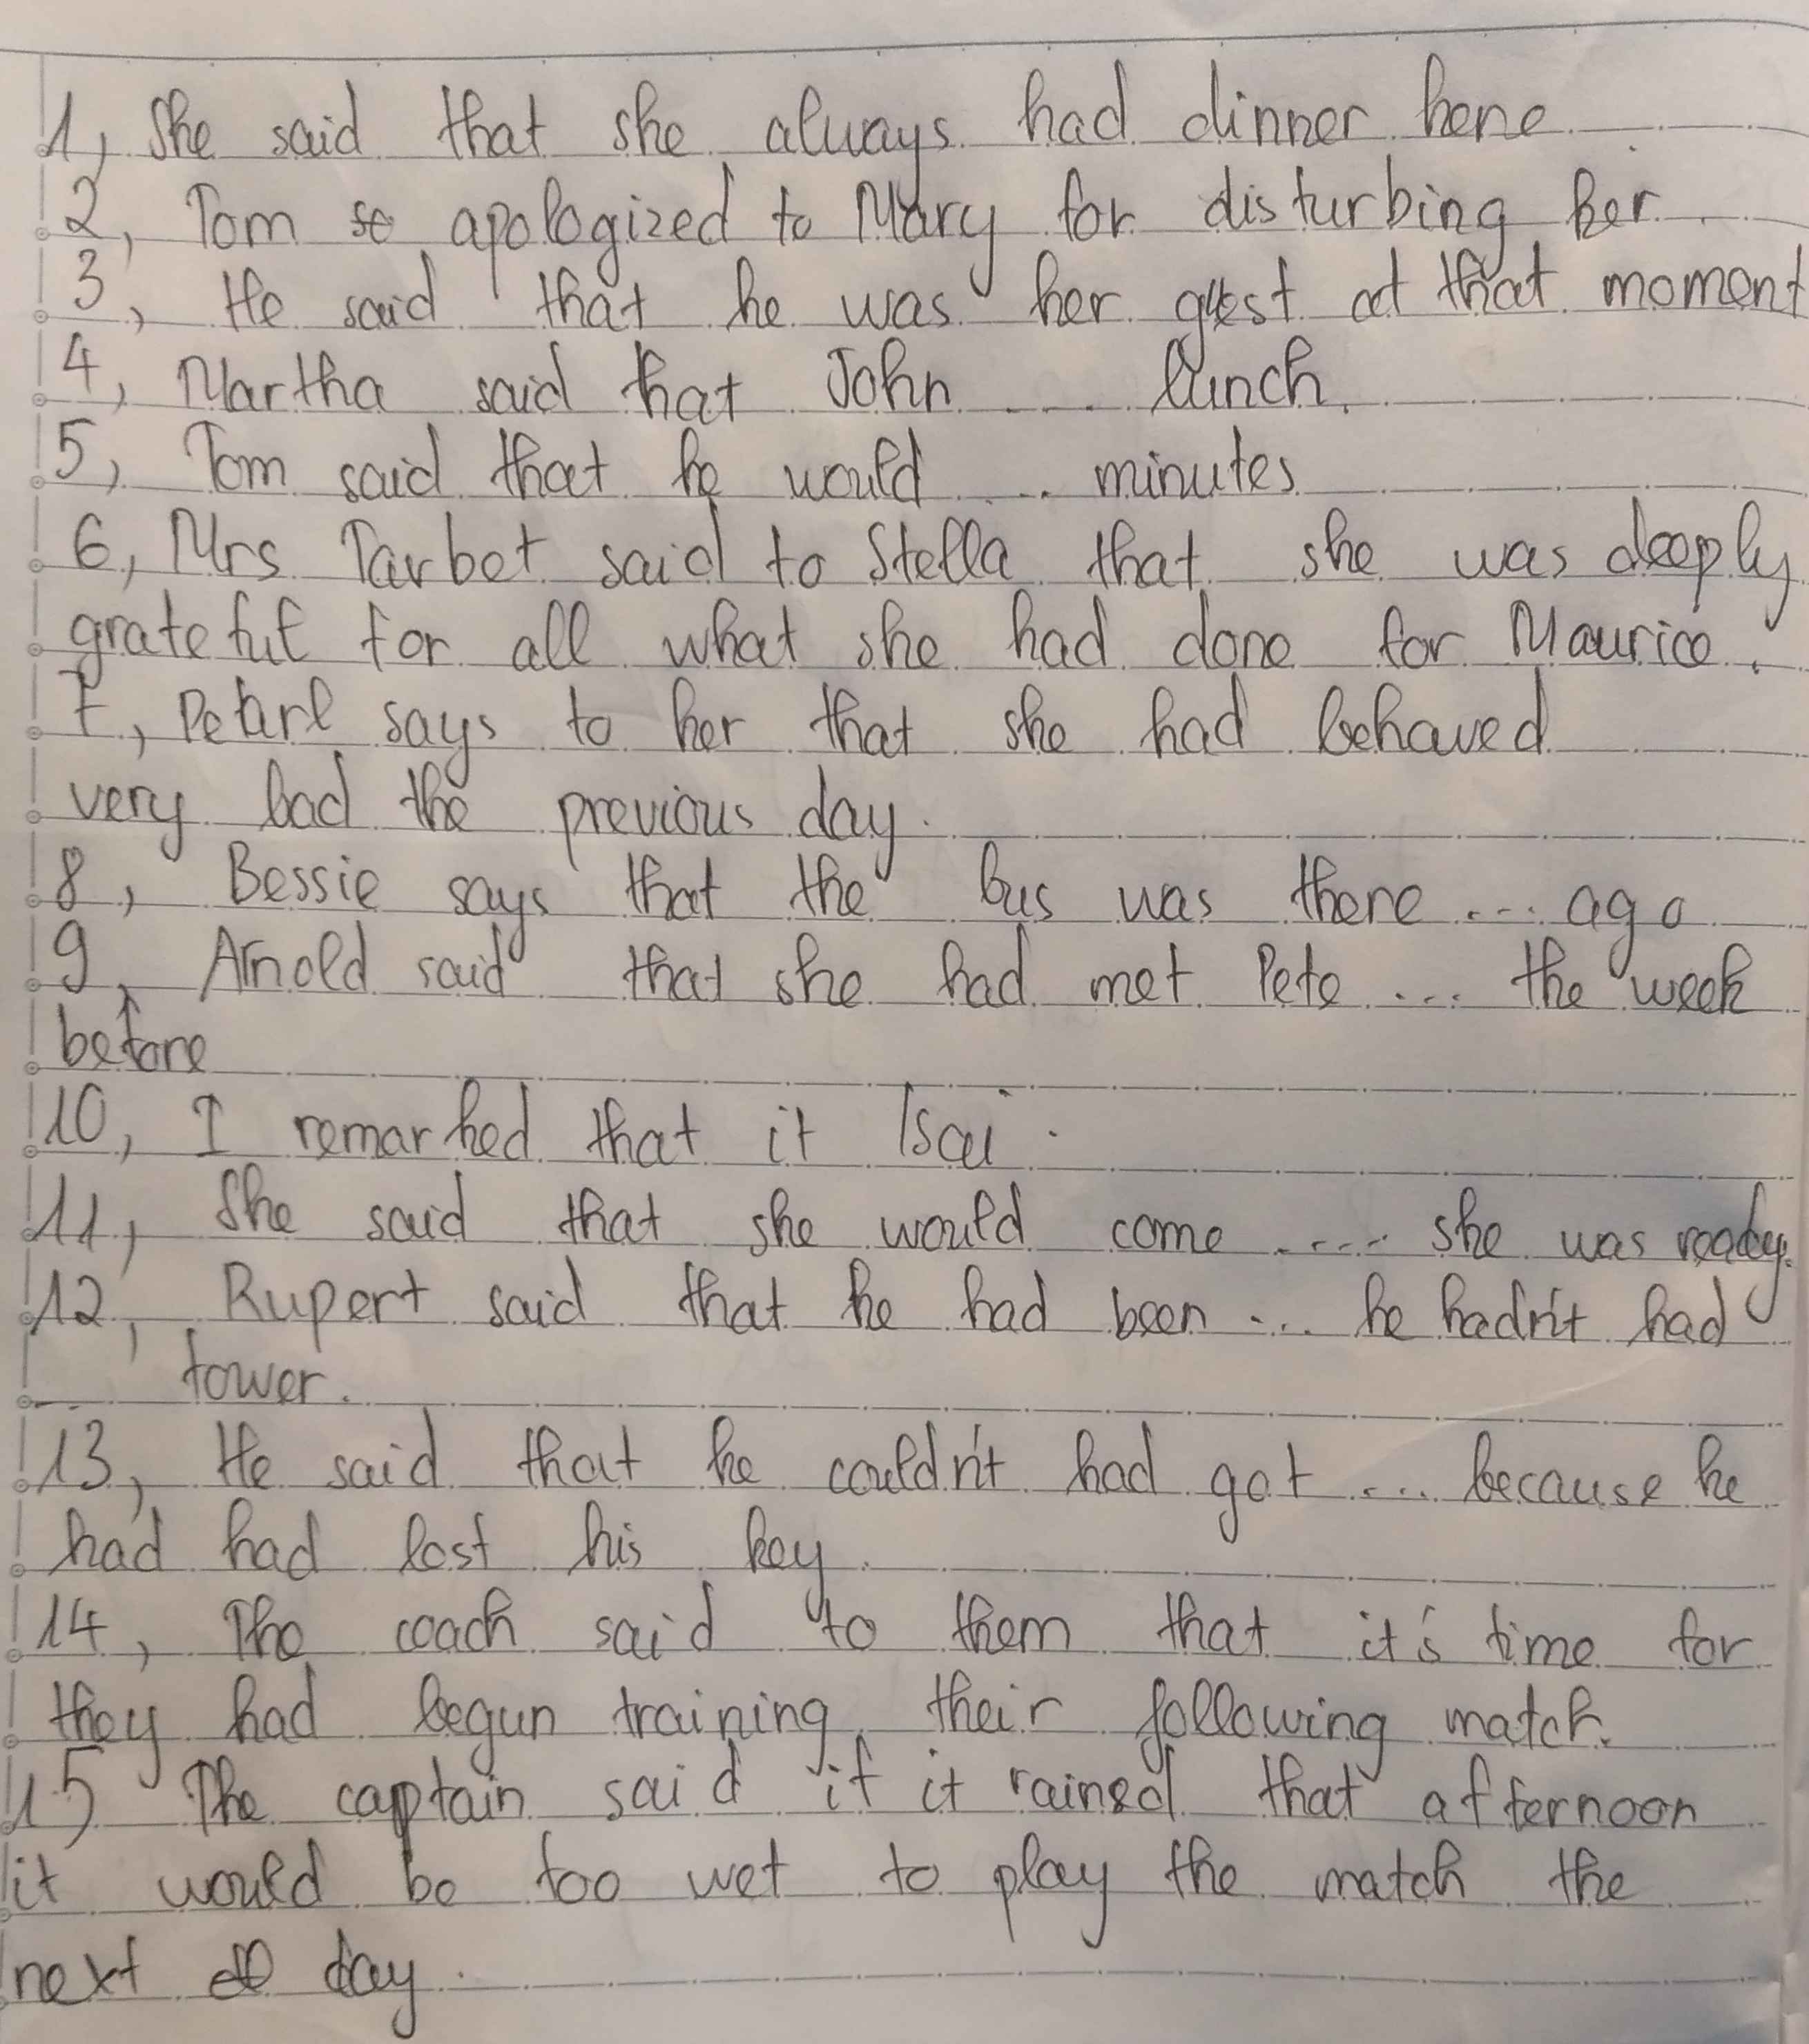 1, She said that she always had dinner here.
2, Tom so apologized to Mary for disturbing her.
3, He said that he was her guest at that moment
4, Martha said that John .... lunch.
5, Tom said that he would .... minutes
6, Mrs Tarbet said to Stella that she was deeply
grateful for all what she had done for Maurice.
7, Pearl says to her that she had behaved
very bad the previous day.
8, Bessie says that the bus was there .... ago
9, Arnold said that she had met Pete .... the week
before
10, I remarked that it /sai.
11, She said that she would come .... she was ready.
12, Rupert said that he had been .... he hadn't had
tower.
13, He said that he couldn't had got .... because he
had had lost his key.
14, The coach said to them that it's time for
they had begun training their following match.
15, The captain said if it rained that afternoon
it would be too wet to play the match the
next day.